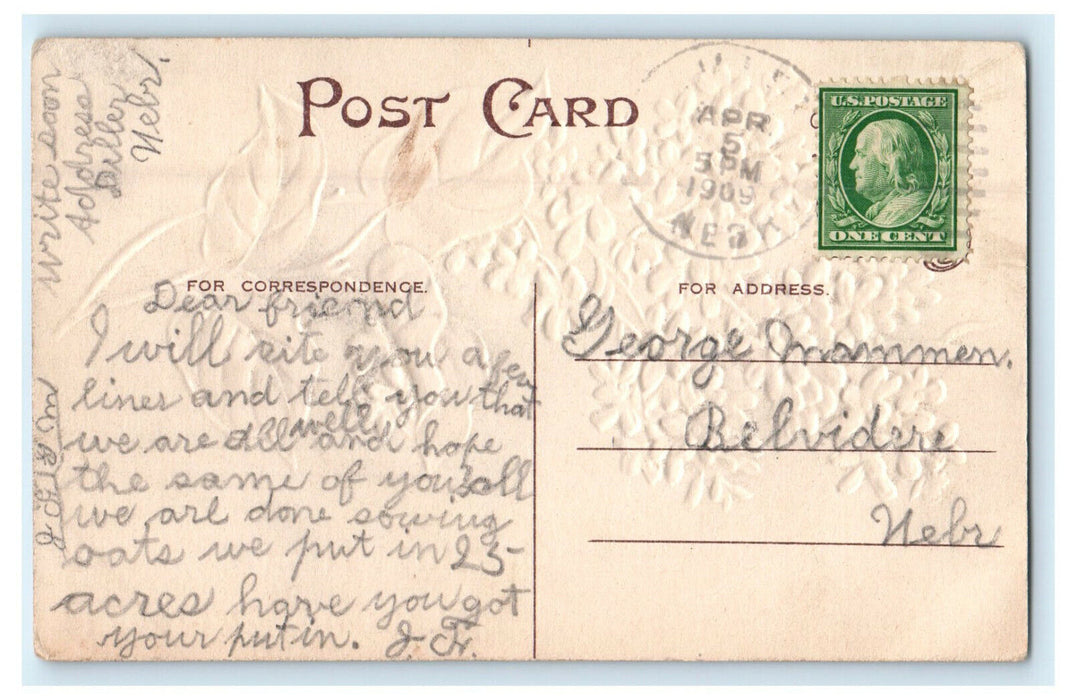 write soon
Address
Diller
Nebr.
POST CARD
APR
5
5 PM
1909
NEBR
U.S. POSTAGE
ONE CENT
FOR CORRESPONDENCE.
Dear friend
I will rite you a few
lines and tell you that
we are all well and hope
the same of you all
we are done sowing
oats we put in 25
acres have you got
your put in. J. F.
FOR ADDRESS.
George Mammen.
Belvidere
Nebr